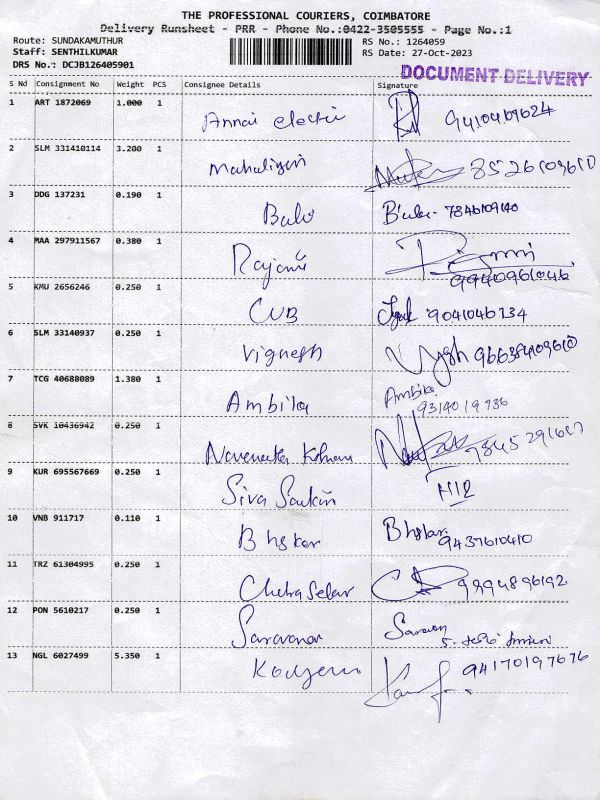 THE PROFESSIONAL COURIERS, COIMBATORE
Delivery Runsheet - PRR - Phone No.:0422-3505555 - Page No.:1
Route: SUNDAKAMUTHUR RS No.: 1264059
Staff: SENTHILKUMAR RS Date: 27-Oct-2023
DRS No.: DCJB126405901 DOCUMENT DELIVERY
S Nd Consignment No Weight PCS Consignee Details Signature
1 ART 1872069 1.000 1 Annai electri 9410469624
2 SLM 331410114 3.200 1 8526109610
3 DDG 137231 0.190 1 Balu 7846109140
4 MAA 297911567 0.380 1 9940961046
5 KMU 2656246 0.250 1 CUB 9041046134
6 SLM 33140937 0.250 1 Vignesh
7 TCG 40688089 1.380 1 Ambika Ambika
9314019936
8 SVK 10436942 0.250 1
9 KUR 695567669 0.250 1 Siva
10 VNB 911717 0.110 1 Bhskar Bhskar
9437610410
11 TRZ 61304995 0.250 1 9994896192
12 PON 5610217 0.250 1 Saravanan Saravan
13 NGL 6027499 5.350 1 94170197676